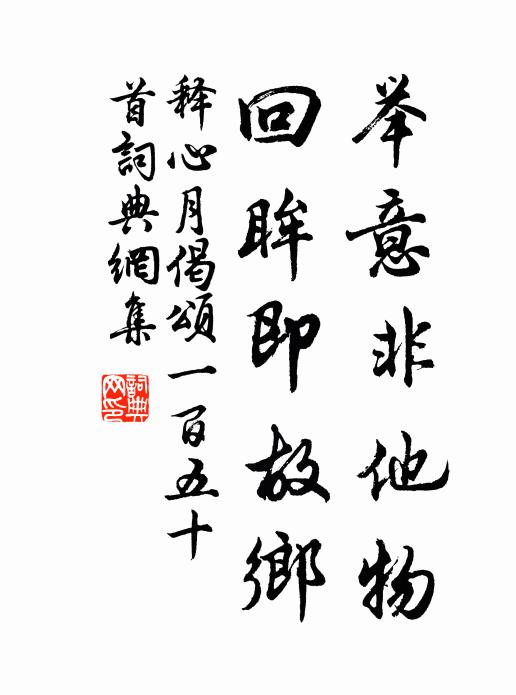 举意非他物
回眸即故鄉
释心月偈頌一百五十
首詞典網集
詞典
网印